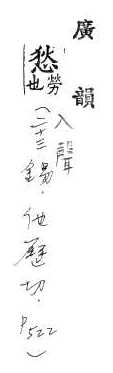 廣韻
入聲
悐勞也
(二十三錫．他歷切．P522)